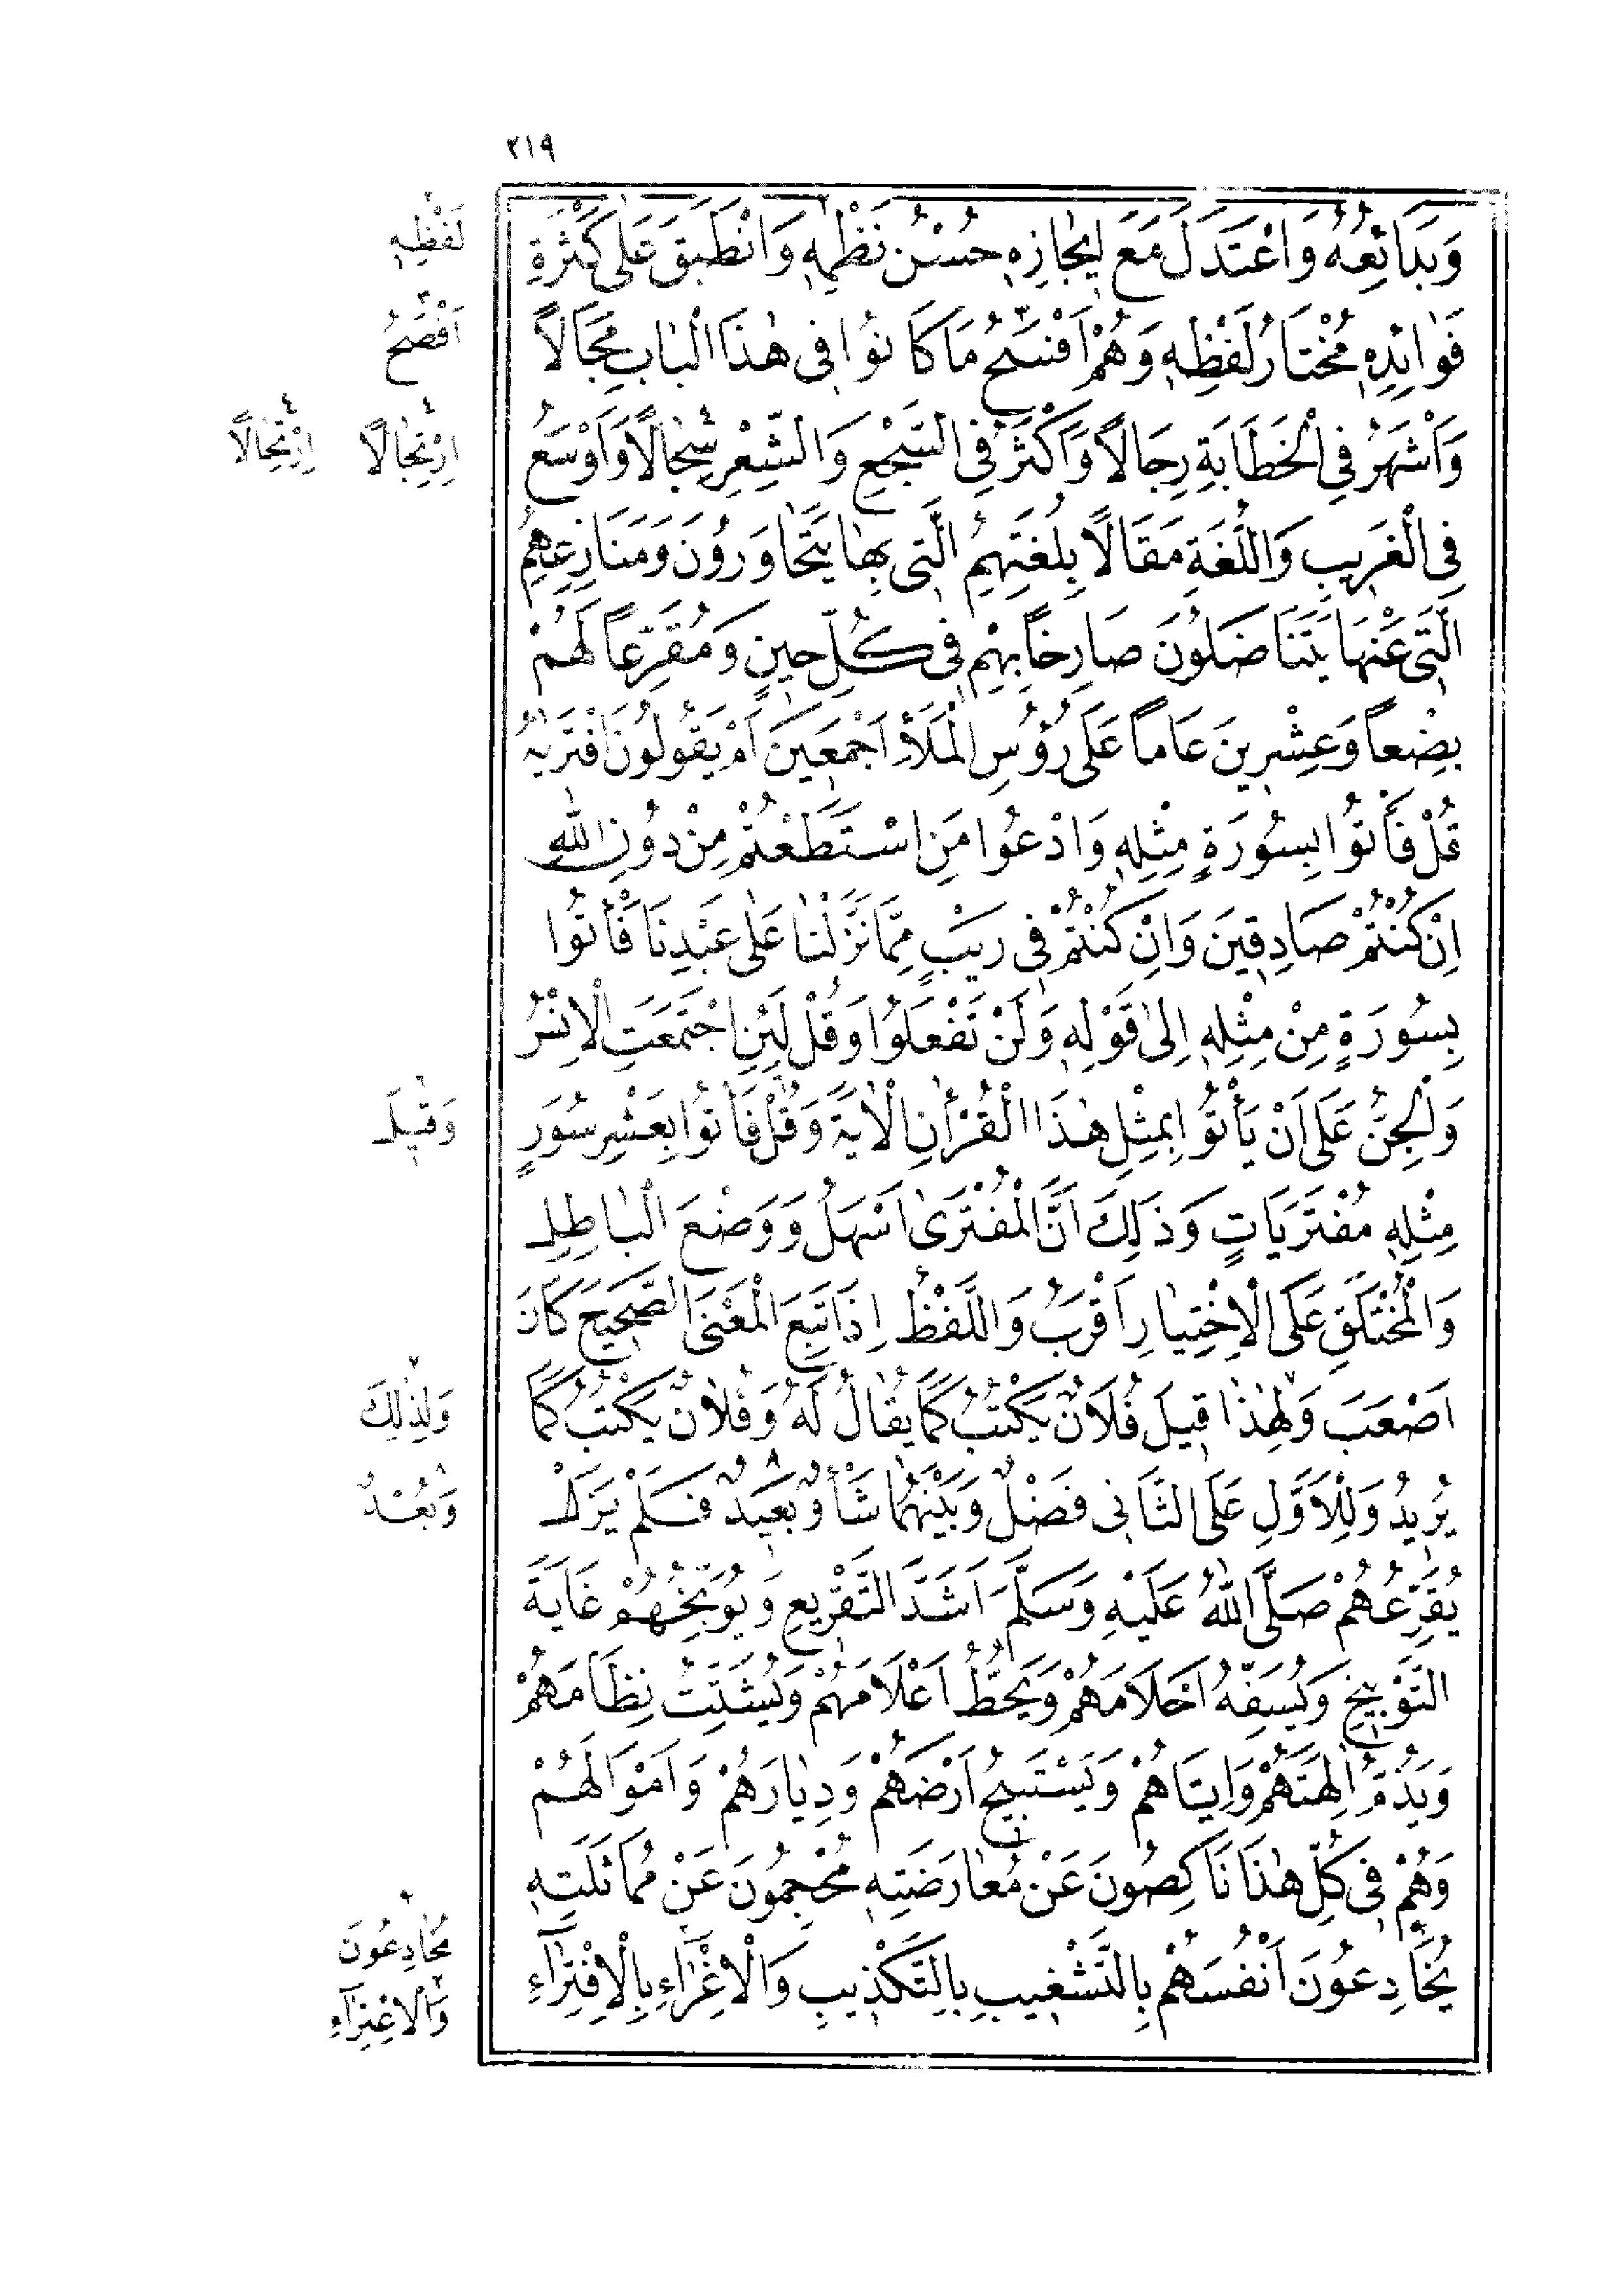 ٢١٩
وَبَدَائِعُهُ وَاعْتَدَلَ مَعَ اِيجَازِهِ حُسْنُ نَظْمِهِ وَانْطَبَقَ عَلَى كَثْرَةِ
فَوَائِدِهِ مُخْتَارُ لَفْظِهِ وَهُمْ اَفْسَحُ مَا كَانُوا فِى هٰذَا الْبَابِ مَجَالًا
وَاَشْهَرُ فِى الْخَطَابَةِ رِجَالًا وَاَكْثَرُ فِى السَّجْعِ وَالشِّعْرِ سِجَالًا وَاَوْسَعُ
فِى الْغَرِيبِ وَاللُّغَةِ مَقَالًا بِلُغَتِهِمُ الَّتِى بِهَا يَتَحَاوَرُونَ وَمَنَازِعِهِمُ
الَّتِى عَنْهَا يَتَنَاضَلُونَ صَارِخًا بِهِمْ فِى كُلِّ حِينٍ وَمُقَرِّعًا لَهُمْ
بِضْعًا وَعِشْرِينَ عَامًا عَلَى رُؤُسِ الْمَلَأِ اَجْمَعِينَ اَمْ يَقُولُونَ افْتَرَيٰهُ
قُلْ فَأْتُوا بِسُورَةٍ مِثْلِهِ وَادْعُوا مَنِ اسْتَطَعْتُمْ مِنْ دُونِ اللّٰهِ
اِنْ كُنْتُمْ صَادِقِينَ وَاِنْ كُنْتُمْ فِى رَيْبٍ مِمَّا نَزَّلْنَا عَلٰى عَبْدِنَا فَأْتُوا
بِسُورَةٍ مِنْ مِثْلِهِ اِلٰى قَوْلِهِ وَلَنْ تَفْعَلُوا وَقُلْ لَئِنِ اجْتَمَعَتِ الْاِنْسُ
وَلْجِنُّ عَلَى اَنْ يَأْتُوا بِمِثْلِ هٰذَا الْقُرْاٰنِ الْاٰيَةَ وَقُلْ فَأْتُوا بِعَشْرِ سُوَرٍ
مِثْلِهِ مُفْتَرَيَاتٍ وَذَلِكَ اَنَّ الْمُفْتَرٰى اَسْهَلُ وَوَضْعَ الْبَاطِلِ
وَالْمُخْتَلَقِ عَلَى الْاِخْتِيَارِ اَقْرَبُ وَاللَّفْظُ اِذَا تَبِعَ الْمَعْنَى الصَّحِيحَ كَانَ
اَصْعَبَ وَلِهٰذَا قِيلَ فُلَانٌ يَكْتُبُ كَمَا يُقَالُ لَهُ وَفُلَانٌ يَكْتُبُ كَمَا
يُرِيدُ وَلِلْاَوَّلِ عَلَى الثَّانِى فَضْلٌ وَبَيْنَهُمَا شَأْوٌ بَعِيدٌ فَلَمْ يَزَلْ
يُقَرِّعُهُمْ صَلَّى اللّٰهُ عَلَيْهِ وَسَلَّمَ اَشَدَّ التَّقْرِيعِ وَيُوَبِّخُهُمْ غَايَةَ
التَّوْبِيخِ وَيُسَفِّهُ اَحْلَامَهُمْ وَيَحُطُّ اَعْلَامَهُمْ وَيُشَتِّتُ نِظَامَهُمْ
وَيَذُمُّ اٰلِهَتَهُمْ وَاِيَّاهُمْ وَيَسْتَبِيحُ اَرْضَهُمْ وَدِيَارَهُمْ وَاَمْوَالَهُمْ
وَهُمْ فِى كُلِّ هٰذَا نَاكِصُونَ عَنْ مُعَارَضَتِهِ مُحْجِمُونَ عَنْ مُمَاثَلَتِهِ
يُخَادِعُونَ اَنْفُسَهُمْ بِالتَّشْغِيبِ بِالتَّكْذِيبِ وَالْاِغْرَاءِ بِالْاِفْتِرَاءِ
لَفْظِهِ
اَفْصَحُ
اِرْتِجَالًا
وَقِيلَ
وَلِذٰلِكَ
وَبُعْدٌ
مُخَادِعُونَ
وَالْاِغْتِرَاءِ